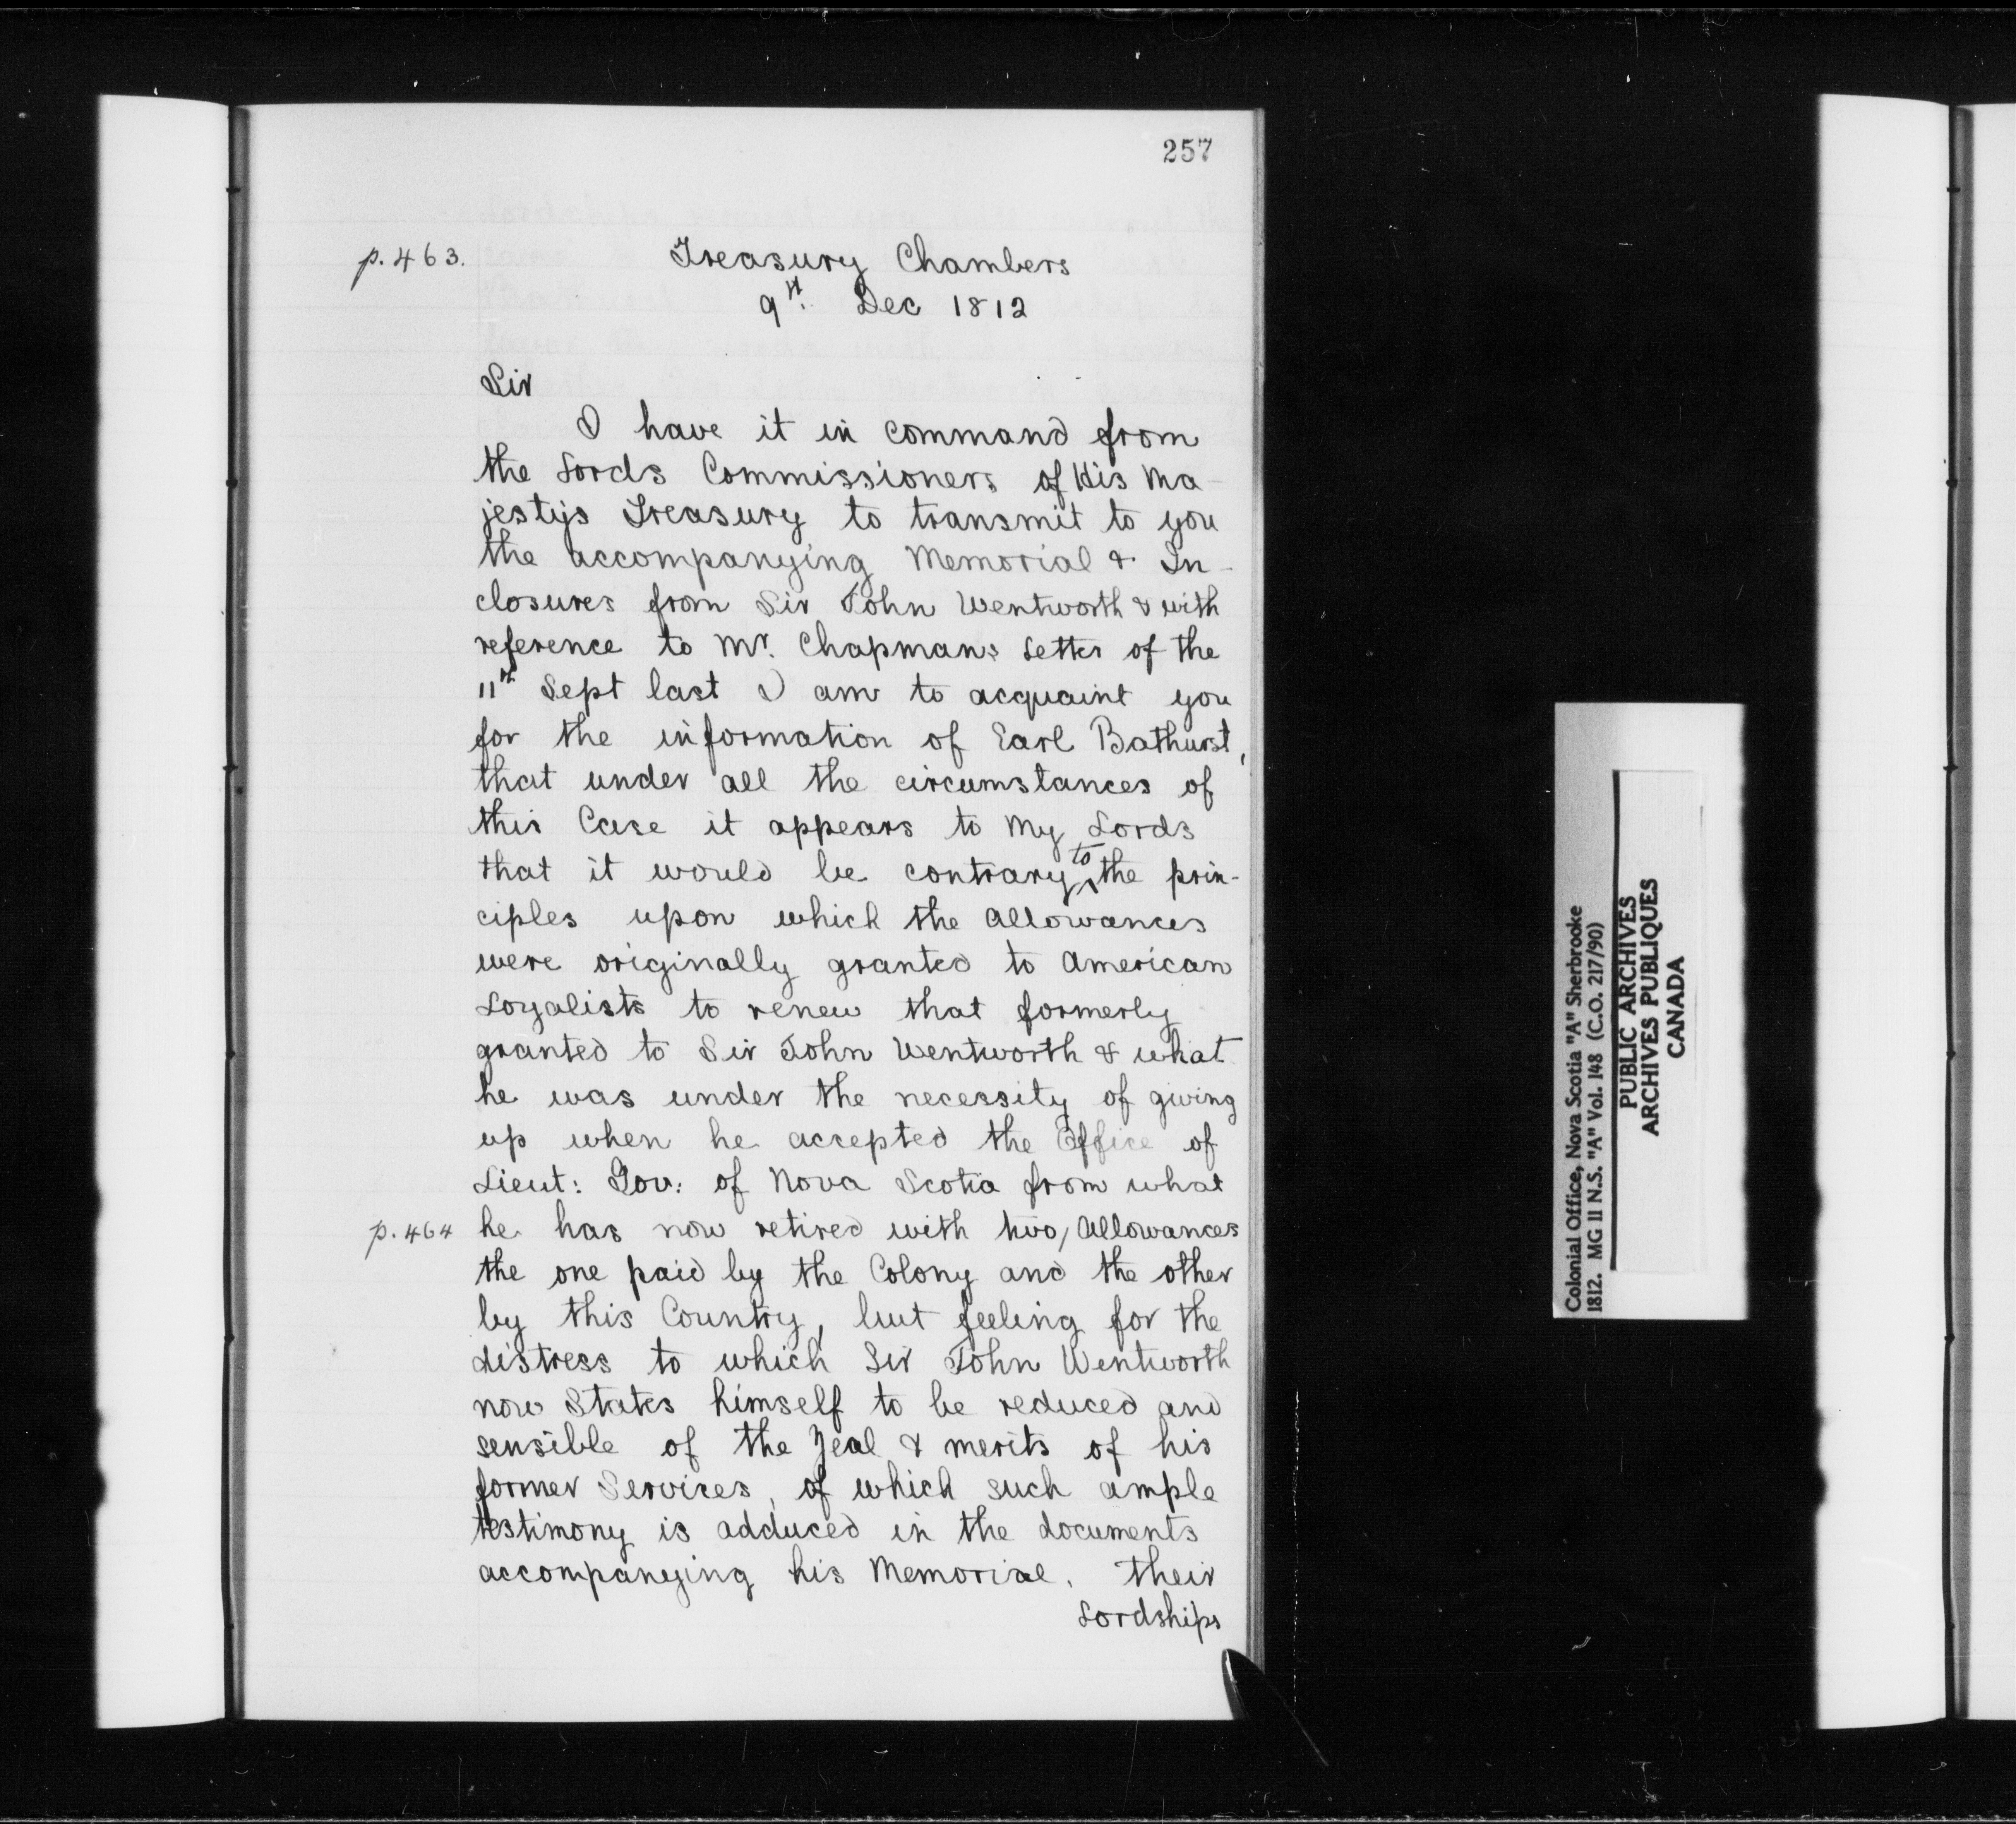 257
p. 463. Treasury Chambers
9th. Dec 1812
Sir
I have it in command from
the Lords Commissioners of His Ma-
jestys Treasury to transmit to you
the accompanying Memorial & In-
closures from Sir John Wentworth & with
reference to Mr. Chapmans Letter of the
11th Sept last I am to acquaint you
for the information of Earl Bathurst,
that under all the circumstances of
this Case it appears to My Lords
that it would be contrary to the prin-
ciples upon which the Allowances
were originally granted to American
Loyalists to renew that formerly
granted to Sir John Wentworth & what
he was under the necessity of giving
up when he accepted the Office of
Lieut: Gov: of Nova Scotia from what
p. 464 he has now retired with two/Allowances
the one paid by the Colony and the other
by this Country, but feeling for the
distress to which Sir John Wentworth
now States himself to be reduced and
sensible of the Zeal & merits of his
former Services, of which such ample
testimony is adduced in the documents
accompanying his Memorial. Their
Lordships
Colonial Office, Nova Scotia "A" Sherbrooke
1812. MG 11 N.S. "A" Vol. 148 (C.O. 217/90)
PUBLIC ARCHIVES
ARCHIVES PUBLIQUES
CANADA